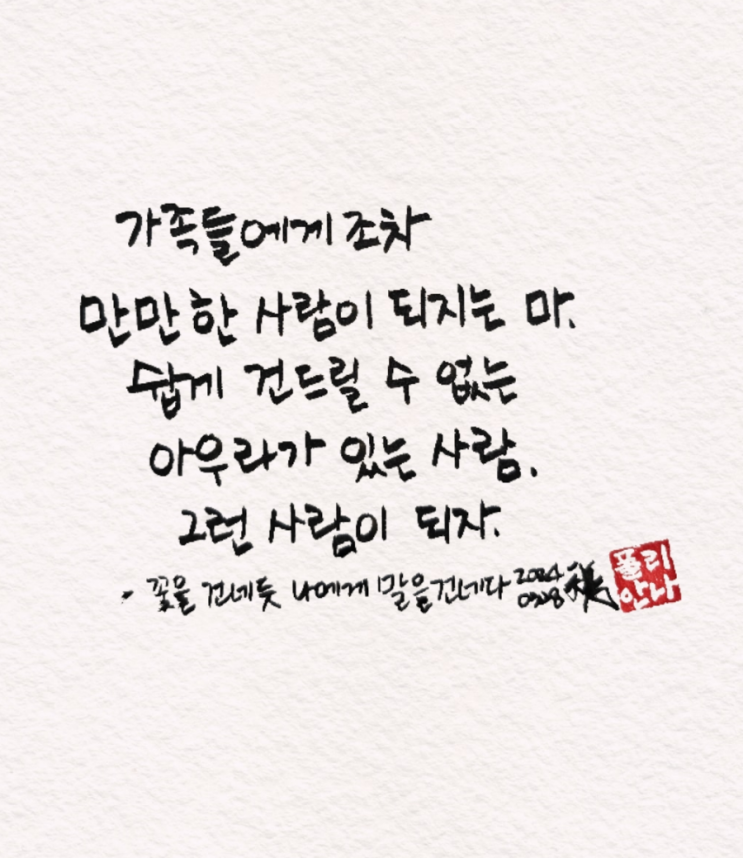 가족들에게 조차
만만한 사람이 되지는 마.
쉽게 건드릴 수 없는
아우라가 있는 사람.
그런 사람이 되자.
- 꽃을 건네듯 나에게 말을 건네다 2024
0328
폴리
안나